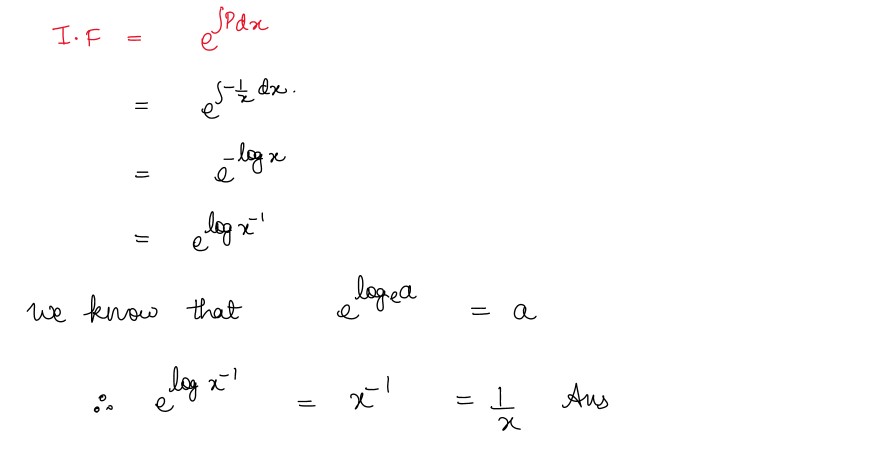 I.F = e^∫Pdx
= e^∫-1/x dx.
= e^-log x
= e^log x^-1
we know that e^log_e a = a
∴ e^log x^-1 = x^-1 = 1/x Ans